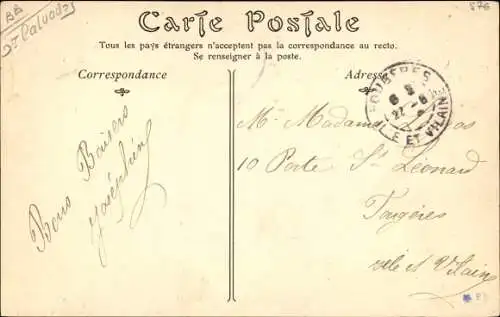 BB
Calvados
576
Carte Postale
Tous les pays étrangers n'acceptent pas la correspondance au recto.
Se renseigner à la poste.
Correspondance
Adresse
FOUGERES
ILLE ET VILAINE
Bons Baisers
Joséphine
Madame
10 Porte St Léonard
Fougères
Ille et Vilaine